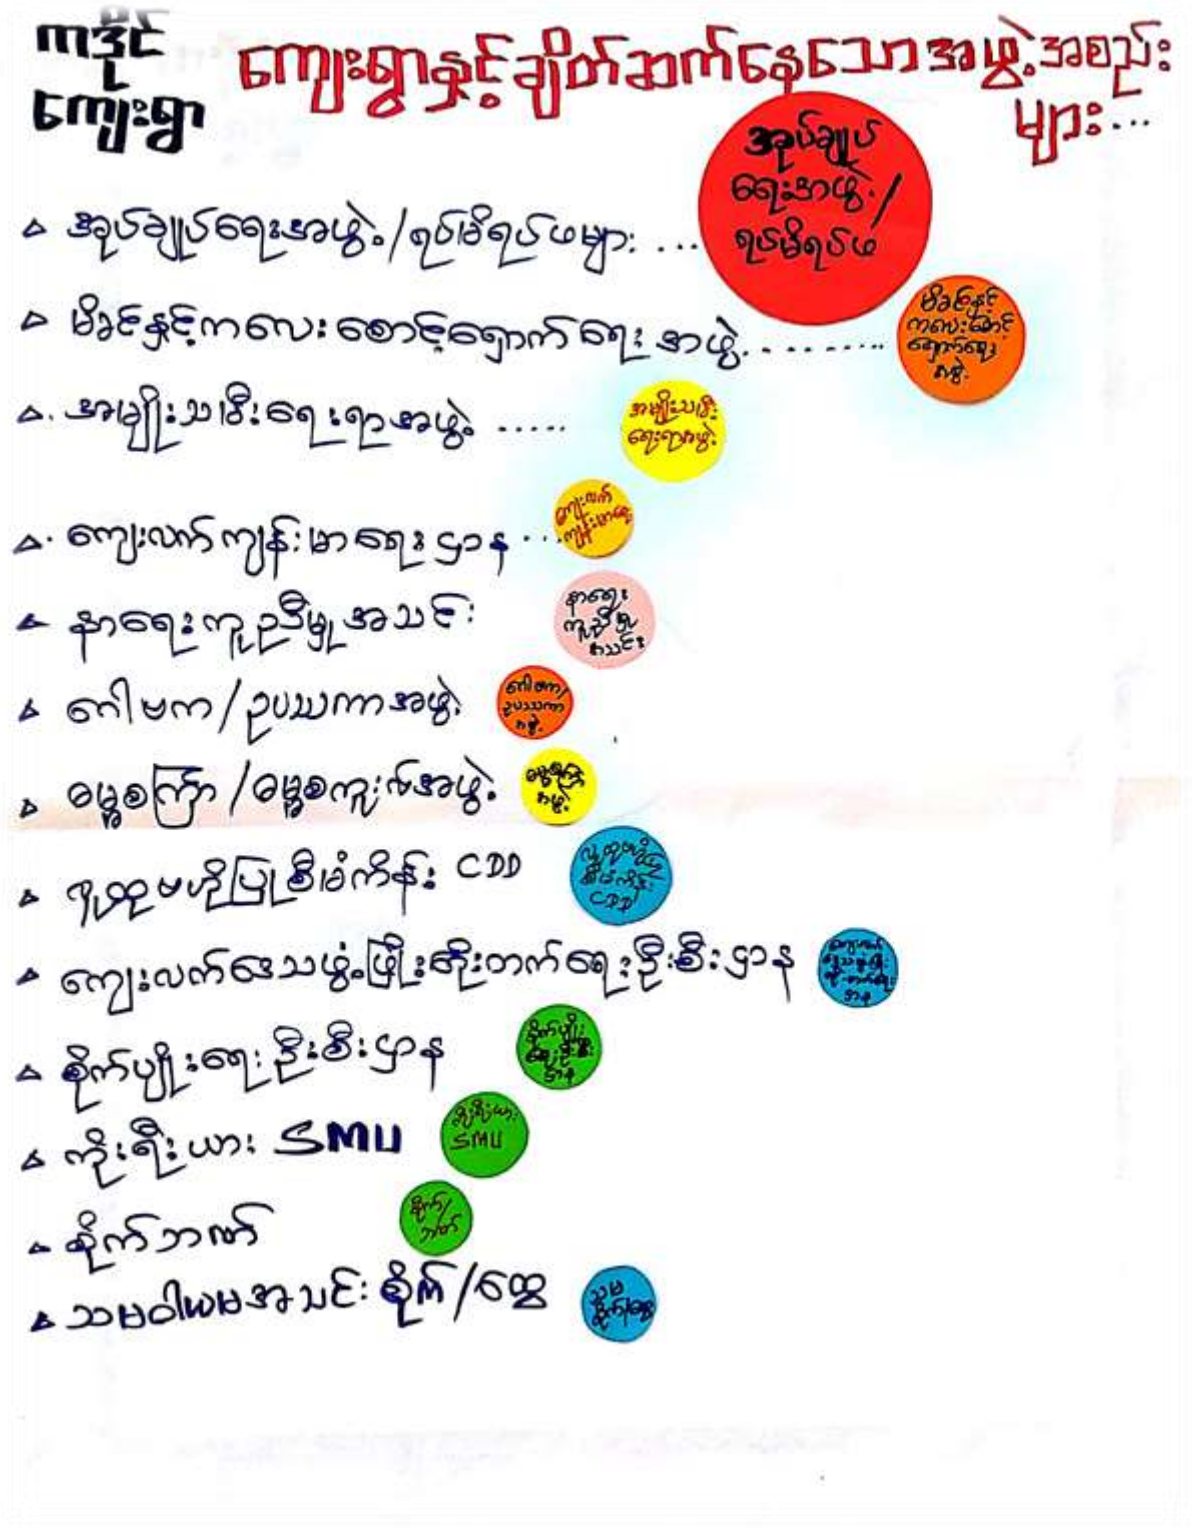 ကဒိုင်
ကျေးရွာ
ကျေးရွာနှင့်ချိတ်ဆက်နေသောအဖွဲ့အစည်း
များ...
အုပ်ချုပ်
ရေးအဖွဲ့/
ရပ်မိရပ်ဖ
▵ အုပ်ချုပ်ရေးအဖွဲ့/ရပ်မိရပ်ဖများ ...
▵ မိခင်နှင့်ကလေးစောင့်ရှောက်ရေးအဖွဲ့..........
မိခင်နှင့်
ကလေးစောင့်
ရှောက်ရေး
အဖွဲ့
▵. အမျိုးသမီးရေးရာအဖွဲ့ .....
အမျိုးသမီး
ရေးရာအဖွဲ့
▵. ကျေးလက်ကျန်းမာရေးဌာန ...
ကျေးလက်
ကျန်းမာရေး
▵ နာရေးကူညီမှုအသင်း
နာရေး
ကူညီမှု
အသင်း
▵ ဂေါပက/ဥပသကာအဖွဲ့
ဂေါပက/
ဥပသကာ
အဖွဲ့
▵ ဓမ္မစကြာ/ဓမ္မစကူးလ်အဖွဲ့
ဓမ္မစကြာ
အဖွဲ့
▵ လူထုဗဟိုပြုစီမံကိန်း CDD
လူထုဗဟိုပြု
စီမံကိန်း
CDD
▵ ကျေးလက်ဒေသဖွံ့ဖြိုးတိုးတက်ရေးဦးစီးဌာန
ကျေးလက်
ဒေသဖွံ့ဖြိုး
တိုးတက်ရေး
ဌာန
▵ စိုက်ပျိုးရေးဦးစီးဌာန
စိုက်ပျိုး
ရေးဦးစီး
ဌာန
▵ ကိုးရီးယား SMU
ကိုးရီးယား
SMU
▵ စိုက်ဘဏ်
စိုက်/
ဘဏ်
▵ သမဝါယမအသင်း စိုက်/ထွေ
သမ
စိုက်/ထွေ